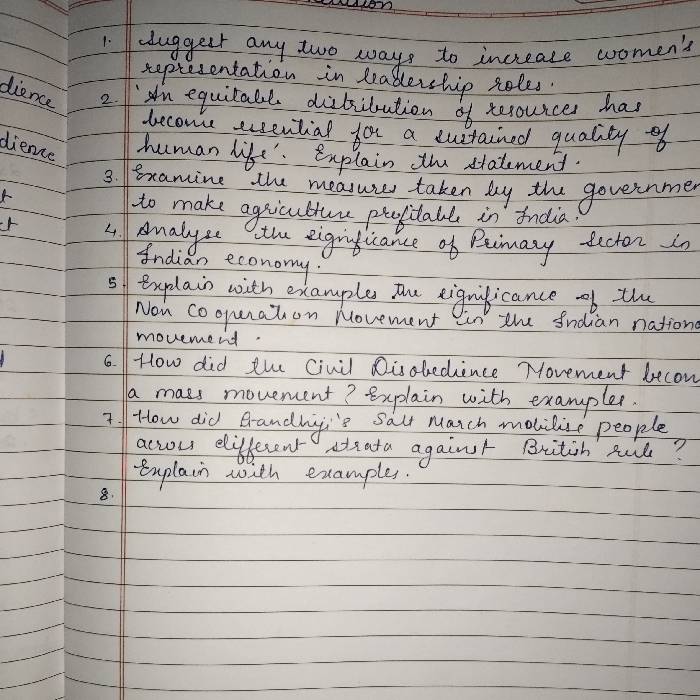 dience
dience
1. Suggest any two ways to increase women's
representation in leadership roles.
2. 'An equitable distribution of resources has
become essential for a sustained quality of
human life'. Explain the statement.
3. Examine the measures taken by the governme
to make agriculture profitable in India.
4. Analyse the significance of Primary Sector in
Indian economy.
5. Explain with examples the significance of the
Non Cooperation Movement in the Indian nationa
movement.
6. How did the Civil Disobedience Movement becom
a mass movement? Explain with examples.
7. How did Gandhiji's Salt March mobilise people
across different strata against British rule?
Explain with examples.
8.